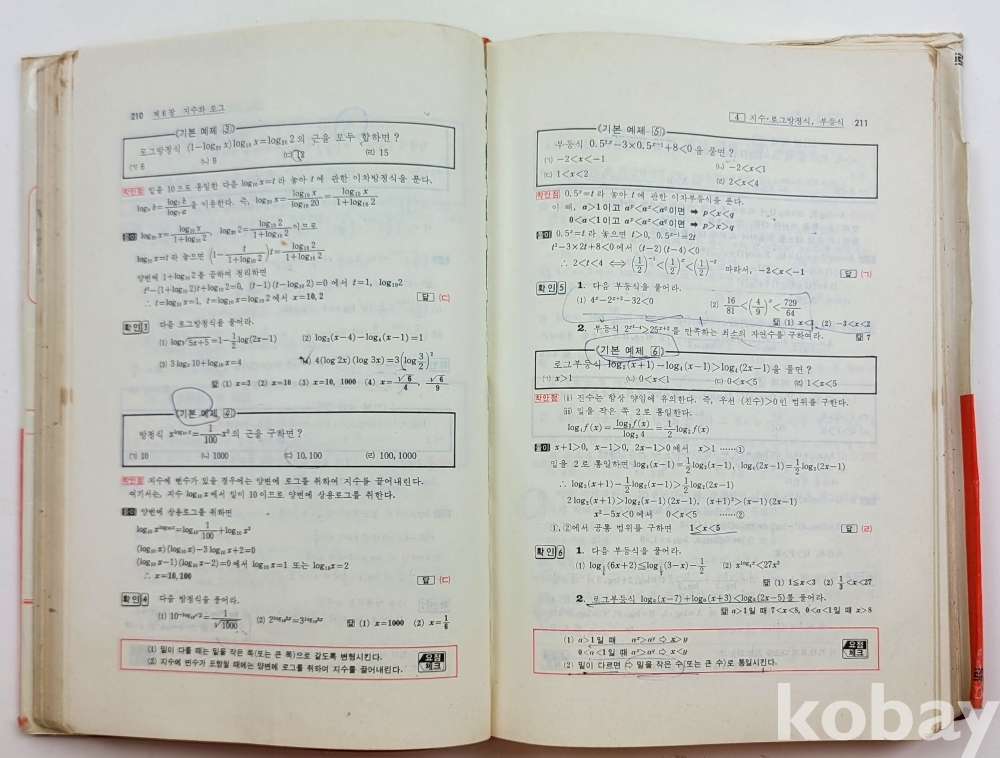 210 제 6 장 지수와 로그
기본 예제 3
로그방정식 (1−log₂₀ x) log₁₀ x=log₂₀ 2 의 근을 모두 합하면?
(ㄱ) 6 (ㄴ) 9 (ㄷ) 12 (ㄹ) 15
착안점 밑을 10으로 통일한 다음 log₁₀ x=t 라 놓아 t에 관한 이차방정식을 푼다.
을 이용한다. 즉, log₂₀ x=log₁₀ x/log₁₀ 20=log₁₀ x/1+log₁₀ 2
풀이 log₂₀ x=log₁₀ x/1+log₁₀ 2, log₂₀ 2=log₁₀ 2/1+log₁₀ 2 이므로
log₁₀ x=t 라 놓으면 (1−t/1+log₁₀ 2)t=log₁₀ 2/1+log₁₀ 2
양변에 1+log₁₀ 2를 곱하여 정리하면
t²−(1+log₁₀ 2)t+log₁₀ 2=0, (t−1)(t−log₁₀ 2)=0 에서 t=1, log₁₀2
∴ t=log₁₀ x=1, t=log₁₀ x=log₁₀ 2 에서 x=10, 2
답 (ㄷ)
확인 3 다음 로그방정식을 풀어라.
(1) log√5x+5=1−1/2 log(2x−1) (2) log₂(x−4)−log₄(x−1)=1
(3) 3 logₓ 10+log₁₀ x=4 (4) 4(log 2x)(log 3x)=3(log 3/2)²
답 (1) x=3 (2) x=10 (3) x=10, 1000 (4) x=√6/4, √6/9
기본 예제 4
방정식 x^log₁₀ x=1/100 x³ 의 근을 구하면?
(ㄱ) 10 (ㄴ) 1000 (ㄷ) 10, 100 (ㄹ) 100, 1000
착안점 지수에 변수가 있을 경우에는 양변에 로그를 취하여 지수를 끌어내린다.
여기서는, 지수 log₁₀ x 에서 밑이 10이므로 양변에 상용로그를 취한다.
풀이 양변에 상용로그를 취하면
log₁₀ x^log₁₀ x=log₁₀ 1/100+log₁₀ x³
(log₁₀ x)(log₁₀ x)−3 log₁₀ x+2=0
(log₁₀ x−1)(log₁₀ x−2)=0 에서 log₁₀ x=1 또는 log₁₀ x=2
∴ x=10, 100
답 (ㄷ)
확인 4 다음 방정식을 풀어라.
답 (1) x=1000 (2) x=1/6
(1) 밑이 다를 때는 밑을 작은 쪽(또는 큰 쪽)으로 같도록 변형시킨다.
(2) 지수에 변수가 포함될 때에는 양변에 로그를 취하여 지수를 끌어내린다.
요점 체크
4 지수·로그방정식, 부등식 211
기본 예제 5
부등식 0.5²ˣ−3×0.5ˣ⁻¹+8<0 을 풀면?
(ㄱ) −2<x<−1 (ㄴ) −2<x<1
(ㄷ) 1<x<2 (ㄹ) 2<x<4
착안점 0.5ˣ=t 라 놓아 t에 관한 이차부등식을 푼다.
이 때, a>1 이고 aᵖ<aˣ<a^q 이면 ➡ p<x<q
0<a<1 이고 aᵖ<aˣ<a^q 이면 ➡ p>x>q
풀이 0.5ˣ=t 라 놓으면 t>0, 0.5ˣ⁻¹=2t
t²−3×2t+8<0 에서 (t−2)(t−4)<0
∴ 2<t<4 ⟺ (1/2)⁻¹<(1/2)ˣ<(1/2)⁻² 따라서, −2<x<−1 답 (ㄱ)
확인 5 1. 다음 부등식을 풀어라.
(1) 4ˣ−2ˣ⁺²−32<0 (2) 16/81<(4/9)ˣ<729/64
답 (1) x<3 (2) −3<x<2
2. 부등식 를 만족하는 최소의 자연수를 구하여라. 답 7
기본 예제 6
로그부등식 log₂(x+1)−log₄(x−1)>log₄(2x−1)을 풀면?
(ㄱ) x>1 (ㄴ) 0<x<1 (ㄷ) 0<x<5 (ㄹ) 1<x<5
착안점 (i) 진수는 항상 양임에 유의한다. 즉, 우선 (진수)>0 인 범위를 구한다.
(ii) 밑을 작은 쪽 2로 통일한다.
log₄ f(x)=log₂ f(x)/log₂ 4=1/2 log₂ f(x)
풀이 x+1>0, x−1>0, 2x−1>0 에서 x>1 ……①
밑을 2로 통일하면 log₄(x−1)=1/2 log₂(x−1), log₄(2x−1)=1/2 log₂(2x−1)
∴ log₂(x+1)−1/2 log₂(x−1)>1/2 log₂(2x−1)
2 log₂(x+1)>log₂(x−1)(2x−1); (x+1)²>(x−1)(2x−1)
x²−5x<0 에서 0<x<5 ……②
①, ②에서 공통 범위를 구하면 1<x<5 답 (ㄹ)
확인 6 1. 다음 부등식을 풀어라.
(2) x^log₃ x<27x²
답 (1) 1≦x<3 (2) 1/3<x<27
2. 로그부등식 logₐ(x−7)+logₐ(x+3)<logₐ(2x−5)를 풀어라.
답 a>1 일 때 7<x<8, 0<a<1 일 때 x>8
(1) a>1 일 때 aˣ>aʸ ⇨ x>y
0<a<1 일 때 aˣ>aʸ ⇨ x<y
(2) 밑이 다르면 ⇨ 밑을 작은 수(또는 큰 수)로 통일시킨다.
요점 체크
kobay